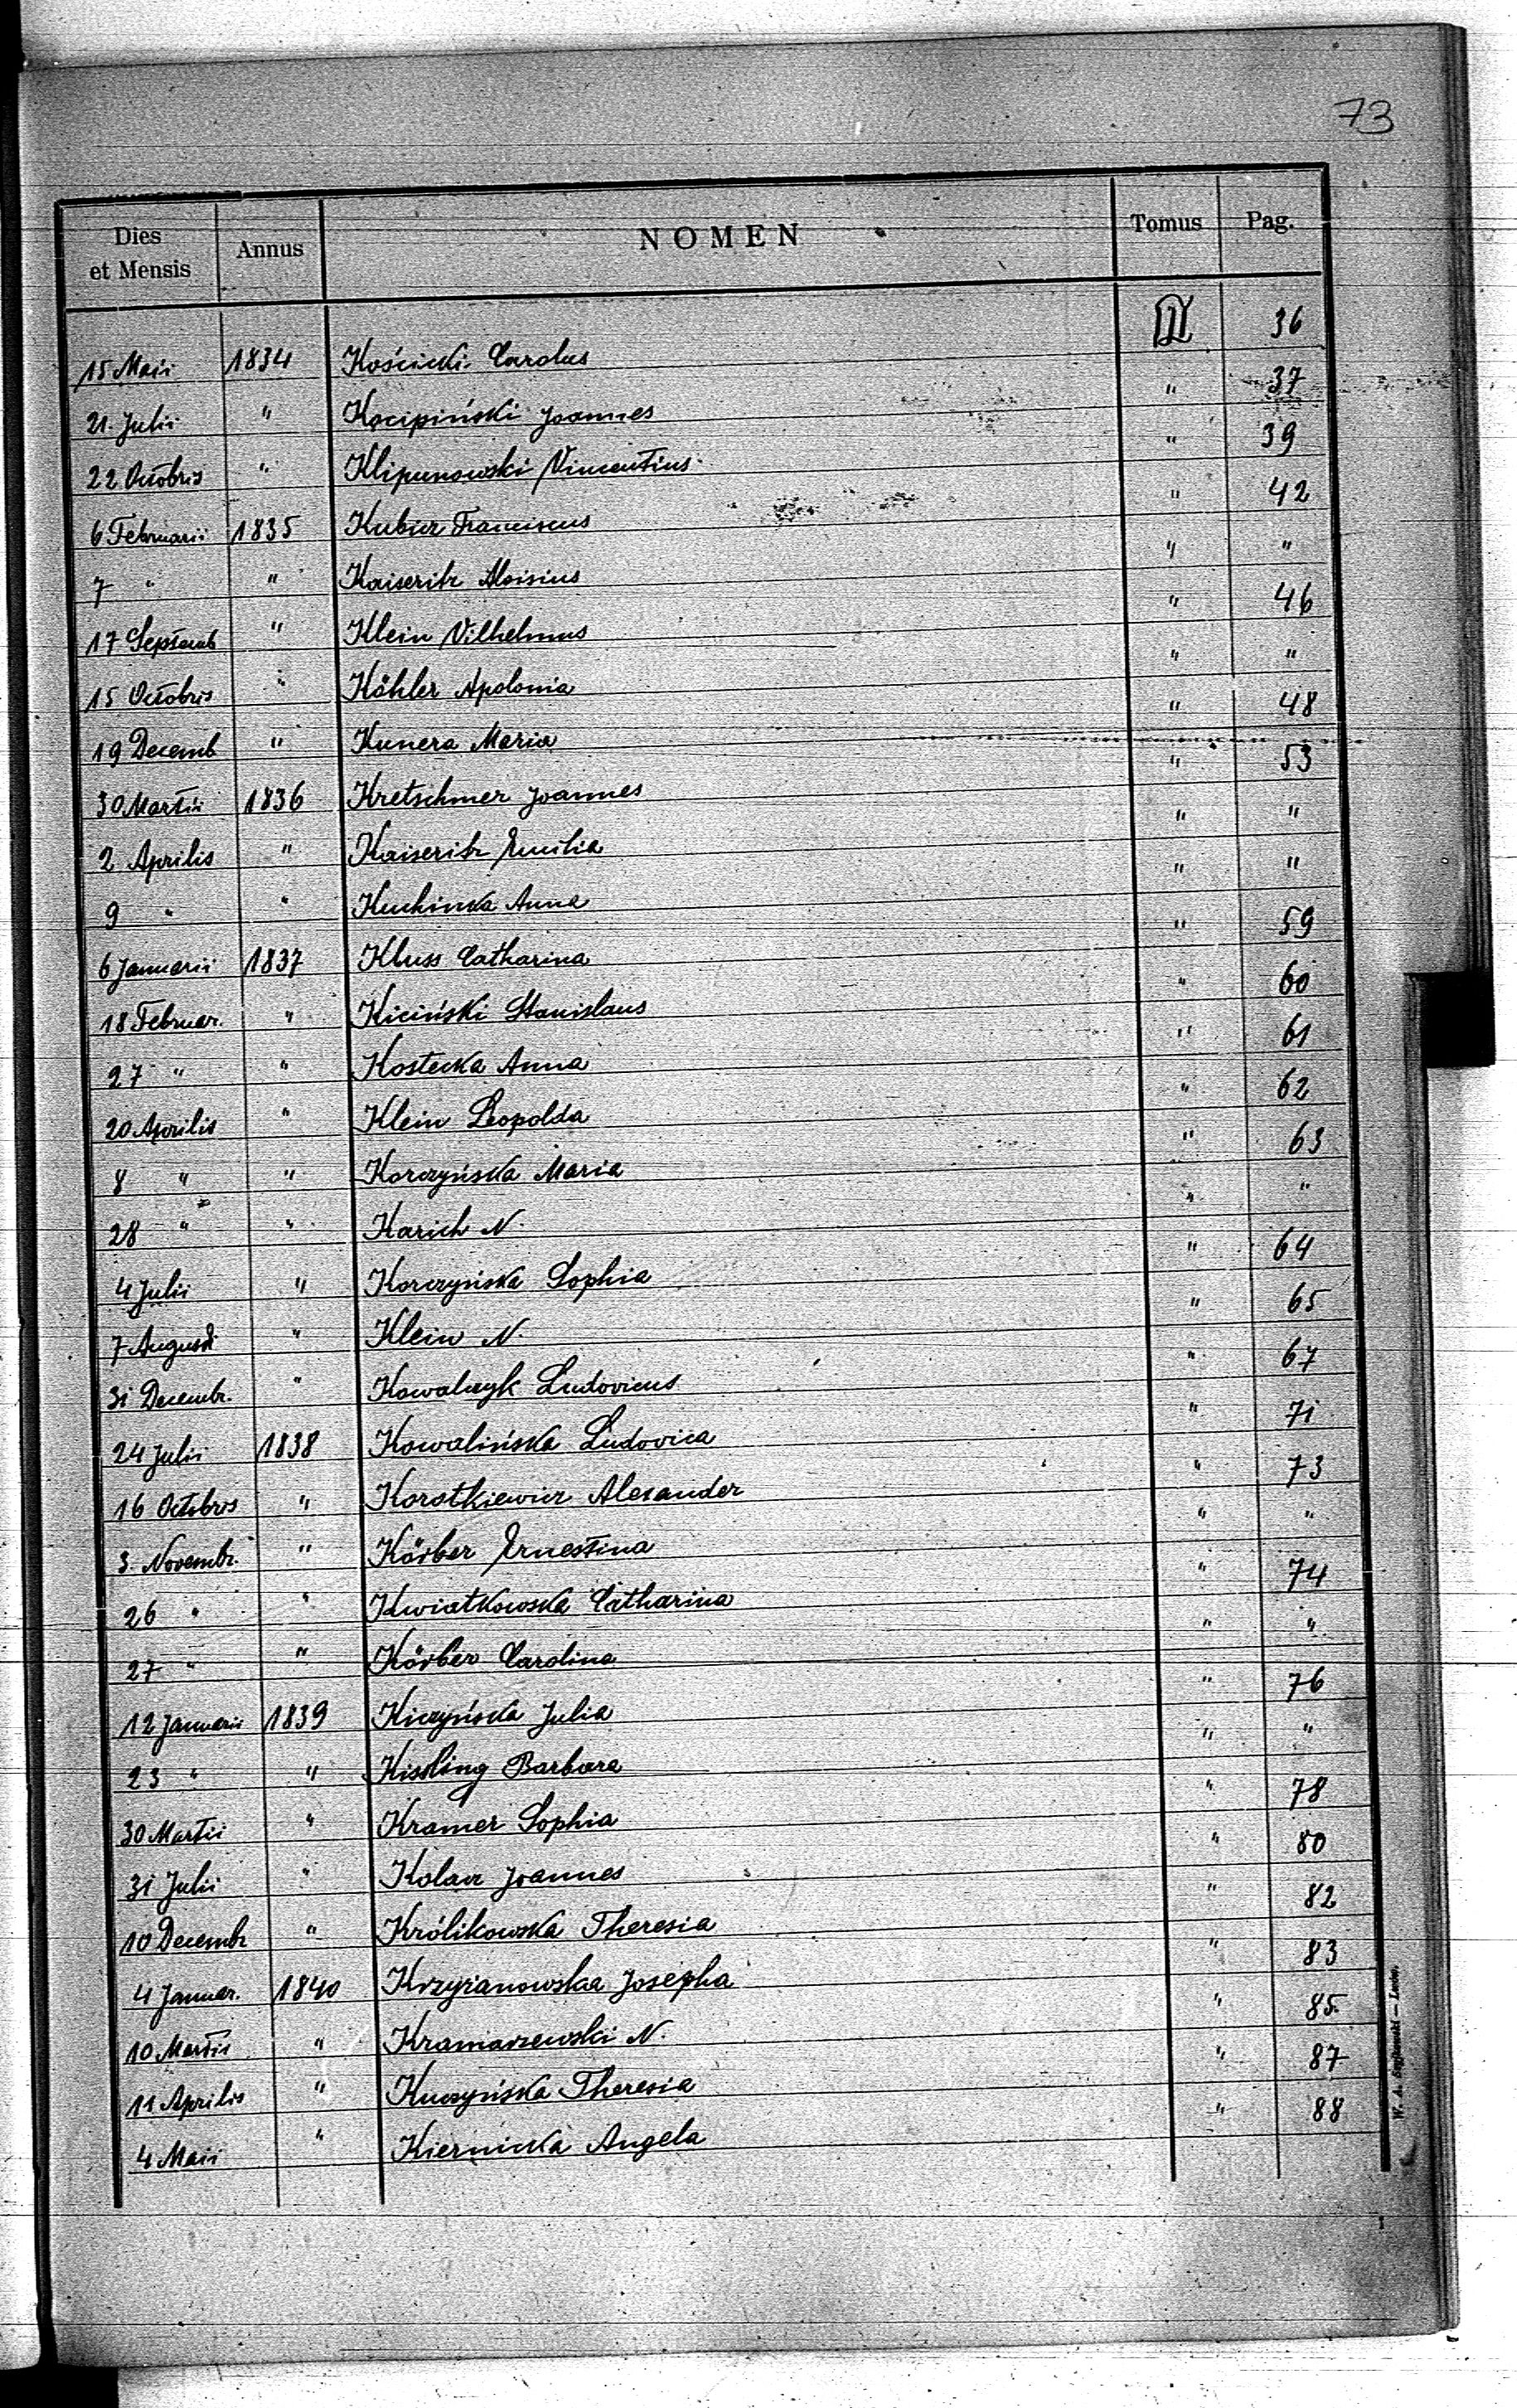 73
Dies et Mensis Annus NOMEN Tomus Pag.
15 Maii 1834 Kościcki Carolus II 36
21. Julii " Kocipiński Joannes " 37
22 Octobris " Klipunowski Vincentius " 39
6 Februarii 1835 Kubicz Franciscus " 42
7 " " Kaiseritz Aloisius " "
17 Septemb " Klein Vilhelmus " 46
15 Octobris " Köhler Apolonia " "
19 Decemb " Kunera Maria " 48
30 Martii 1836 Kretschmer Joannes " 53
2 Aprilis " Kaiseritz Emilia " "
9 " " Kuchinka Anna " "
6 Januarii 1837 Kluss Catharina " 59
18 Februar. " Kiciński Stanislaus " 60
27 " " Kostecka Anna " 61
20 Aprilis " Klein Leopolda " 62
8 " " Korczyńska Maria " 63
28 " " Karich N. " "
4 Julii " Korczyńska Sophia " 64
7 Augusti " Klein N. " 65
31 Decembr. " Kowalczyk Ludovicus " 67
24 Julii 1838 Kowalińska Ludovica " 71
16 Octobris " Korotkiewicz Alexander " 73
3. Novembr. " Körber Ernestina " "
26 " " Kwiatkowska Catharina " 74
27 " " Körber Carolina " "
12 Januarii 1839 Kiczyńska Julia " 76
23 " " Kissling Barbara " "
30 Martii " Kramer Sophia " 78
31 Julii " Kolarz Joannes " 80
10 Decembr " Królikowska Theresia " 82
4 Januar. 1840 Krzyżanowska Josepha " 83
10 Martii " Kramarzewski N. " 85
11 Aprilis " Kuczyńska Theresia " 87
4 Maii " Kiernicka Angela " 88